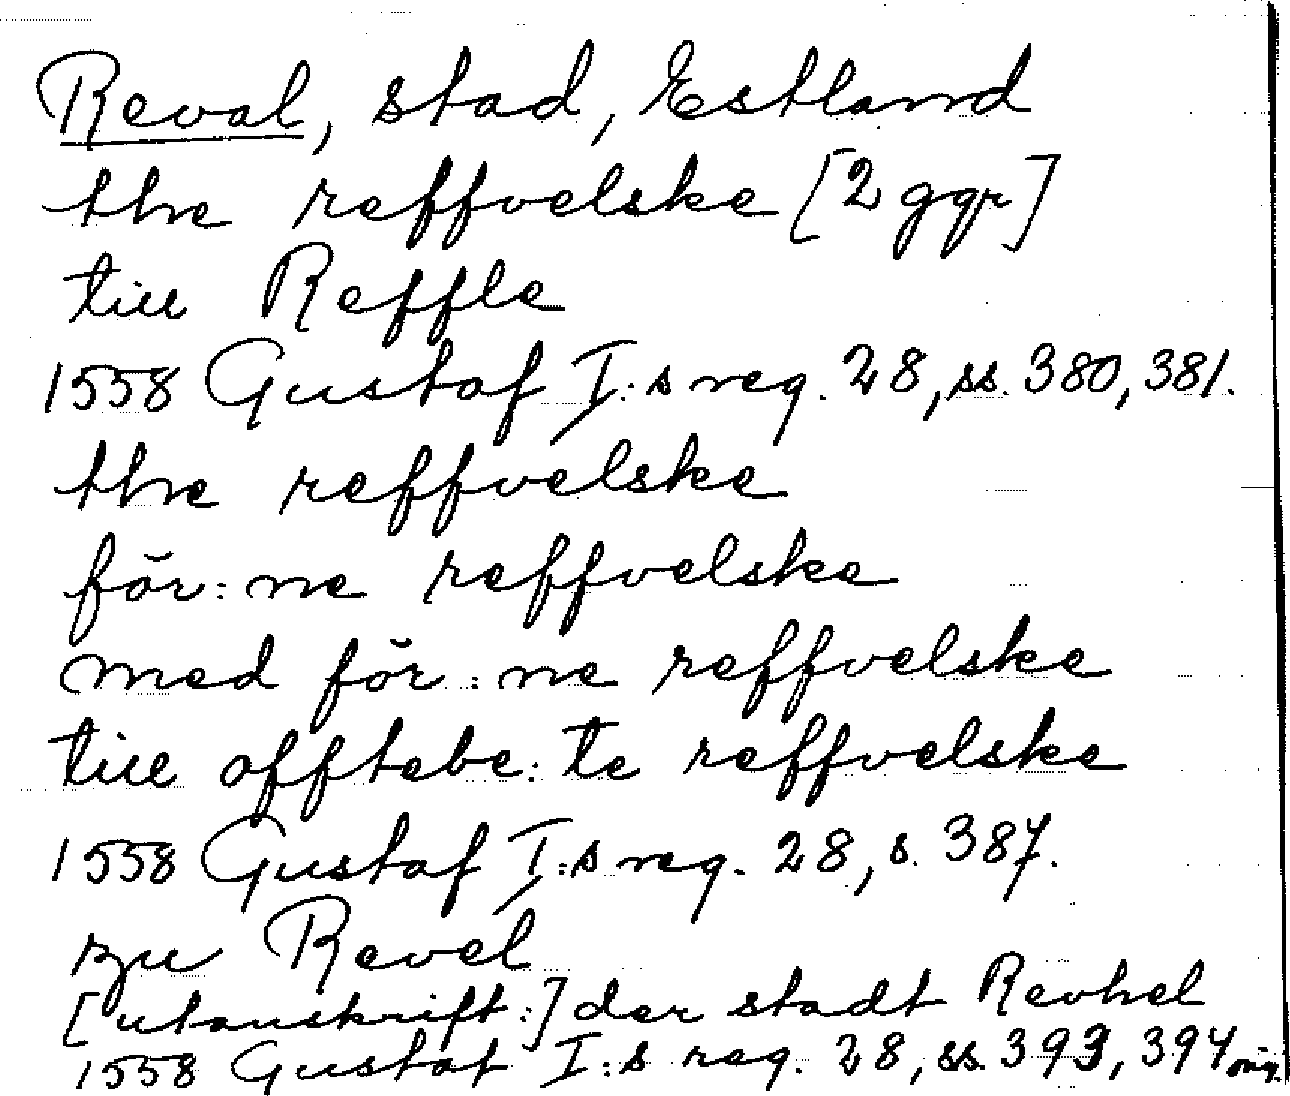 Reval, stad, Estland
the reffvelske [2 ggr]
till Reffle
1558 Gustaf I:s reg. 28, ss. 380, 381.
the reffvelske
för:ne reffvelske
med för:ne reffvelske
till offtebe:te reffvelske
1558 Gustaf I:s reg. 28, s. 387.
zu Revel
[utanskrift:] der stadt Revhel
1558 Gustaf I:s reg. 28, ss. 393, 394 orig.